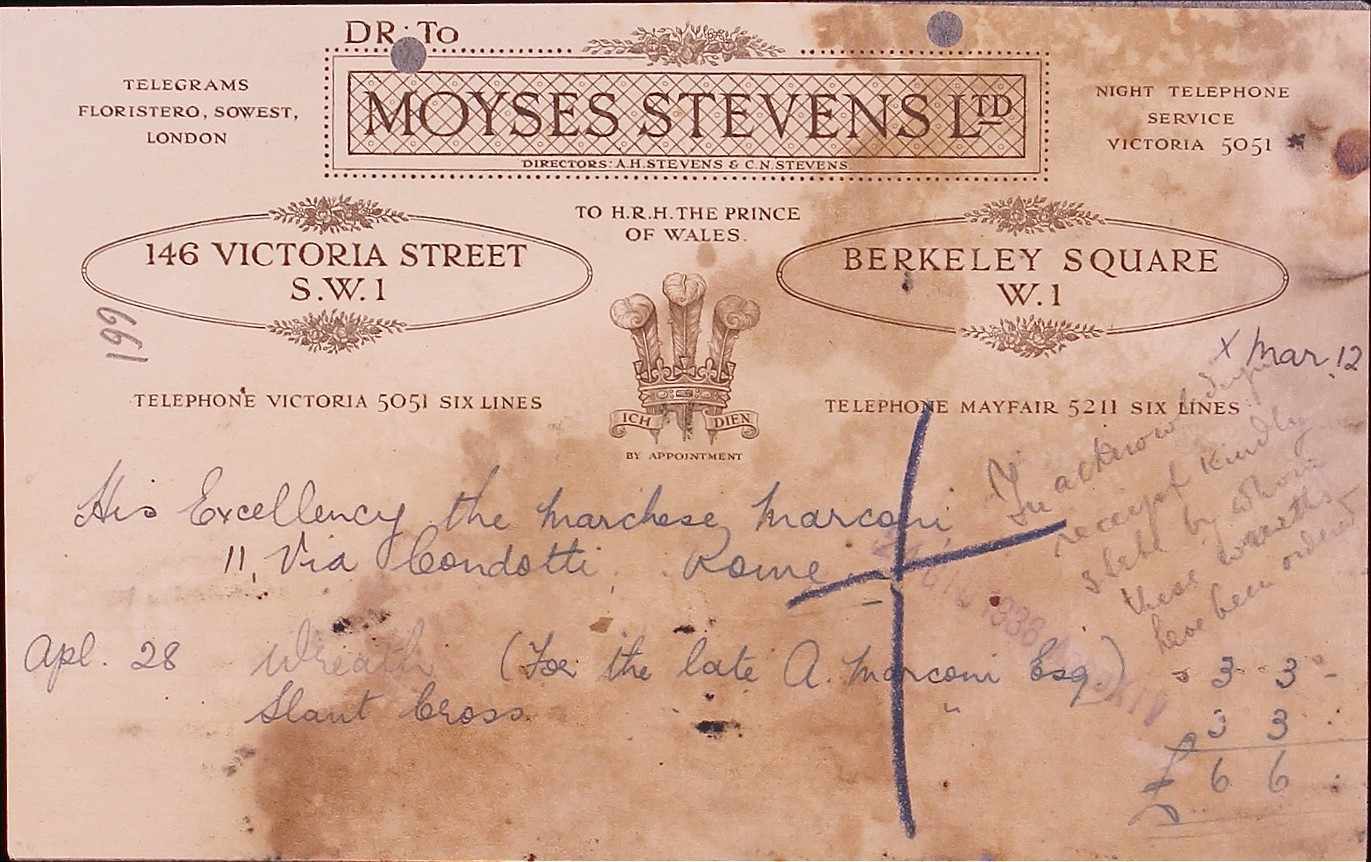 DR. TO
MOYSES STEVENS LTD
DIRECTORS: A.H. STEVENS & C.N. STEVENS
TELEGRAMS
FLORISTERO, SOWEST,
LONDON
NIGHT TELEPHONE
SERVICE
VICTORIA 5051
146 VICTORIA STREET
S.W.1
TO H.R.H. THE PRINCE
OF WALES.
BERKELEY SQUARE
W.1
199
TELEPHONE VICTORIA 5051 SIX LINES
ICH DIEN
BY APPOINTMENT
TELEPHONE MAYFAIR 5211 SIX LINES
x Mar. 12
In acknowledging
receipt kindly
state by whom
these wreaths
have been ordered
His Excellency the Marchese Marconi
11, Via Condotti, Rome
1938
Apl. 28 Wreath (For the late A. Marconi Esq) 3 3 -
Slant Cross " 3 3 :
£ 6 6 :